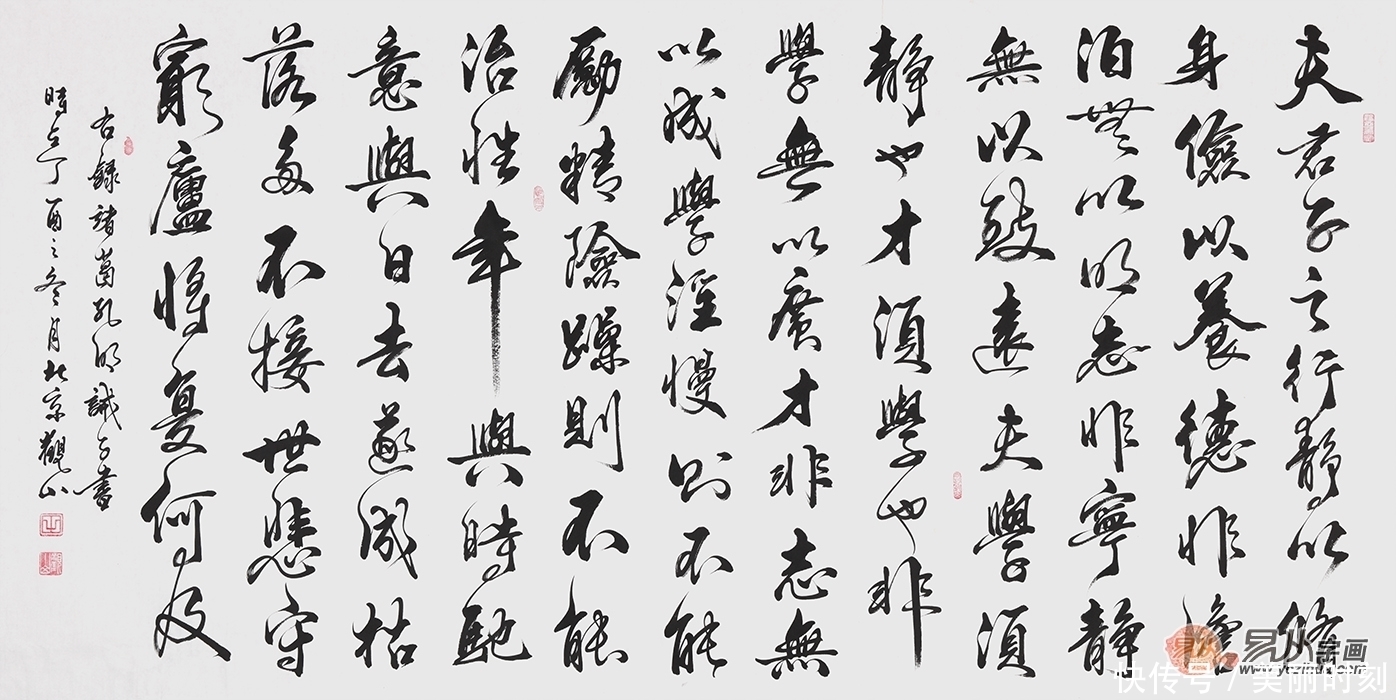 夫君子之行静以修
身儉以養德非澹
泊無以明志非寧静
無以致遠夫學須
静也才須學也非
學無以廣才非志無
以成學淫慢則不能
勵精險躁則不能
治性年與時馳
意與日去遂成枯
落多不接世悲守
窮廬將复何及
右錄諸葛孔明誡子書
時在丁酉之冬月北京觀山
易从字画
快传号 / 美丽时刻